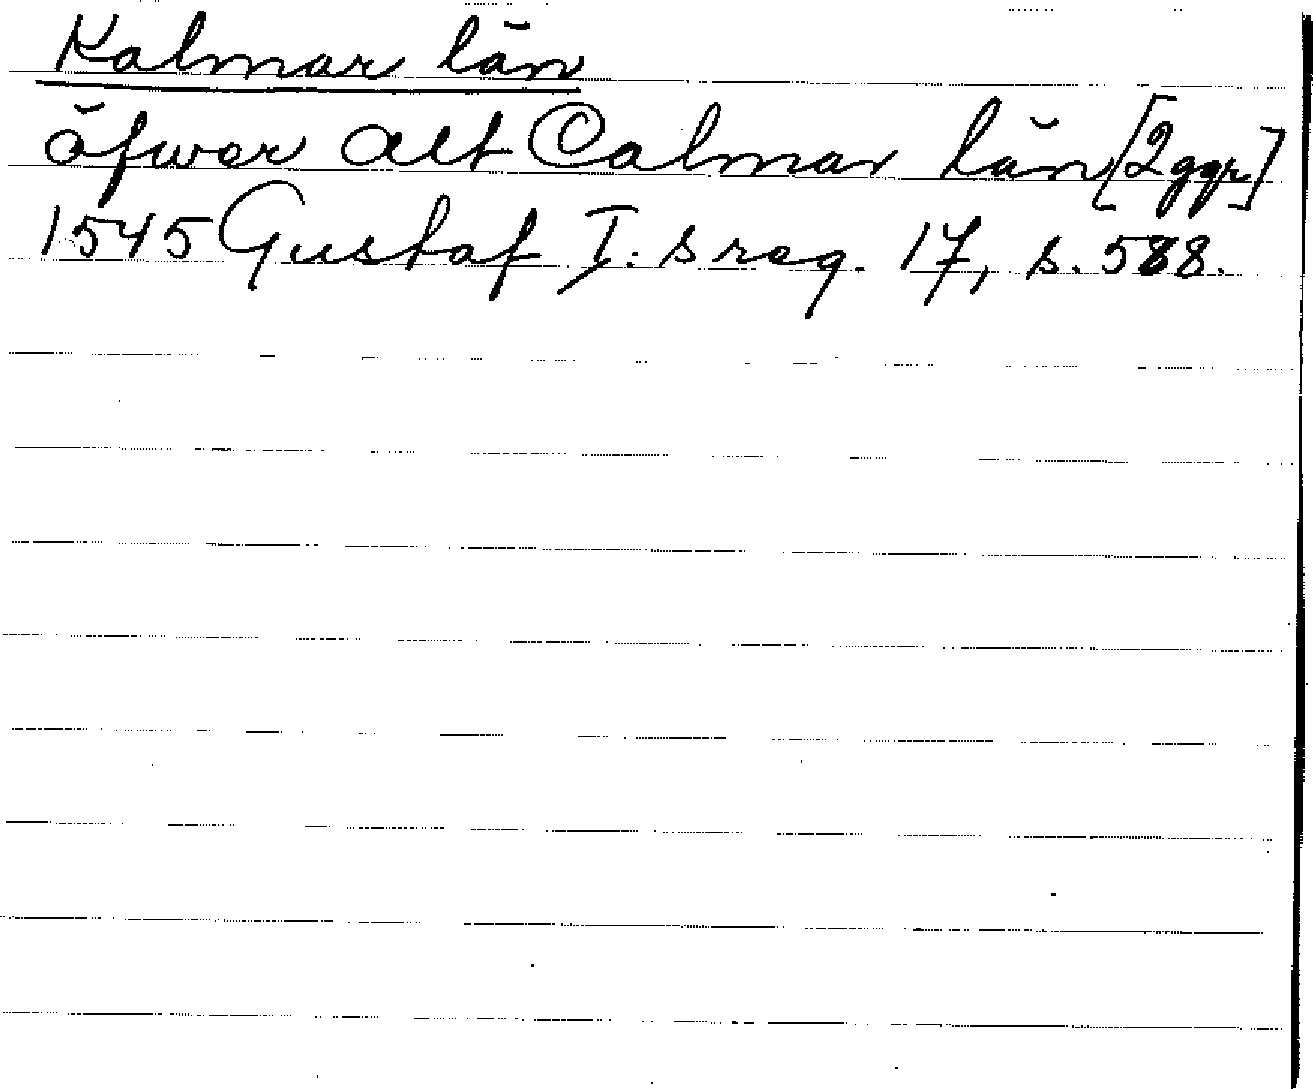 Kalmar län
öfwer alt Calmar län [2 ggr]
1545 Gustaf I:s reg. 17, s. 588.